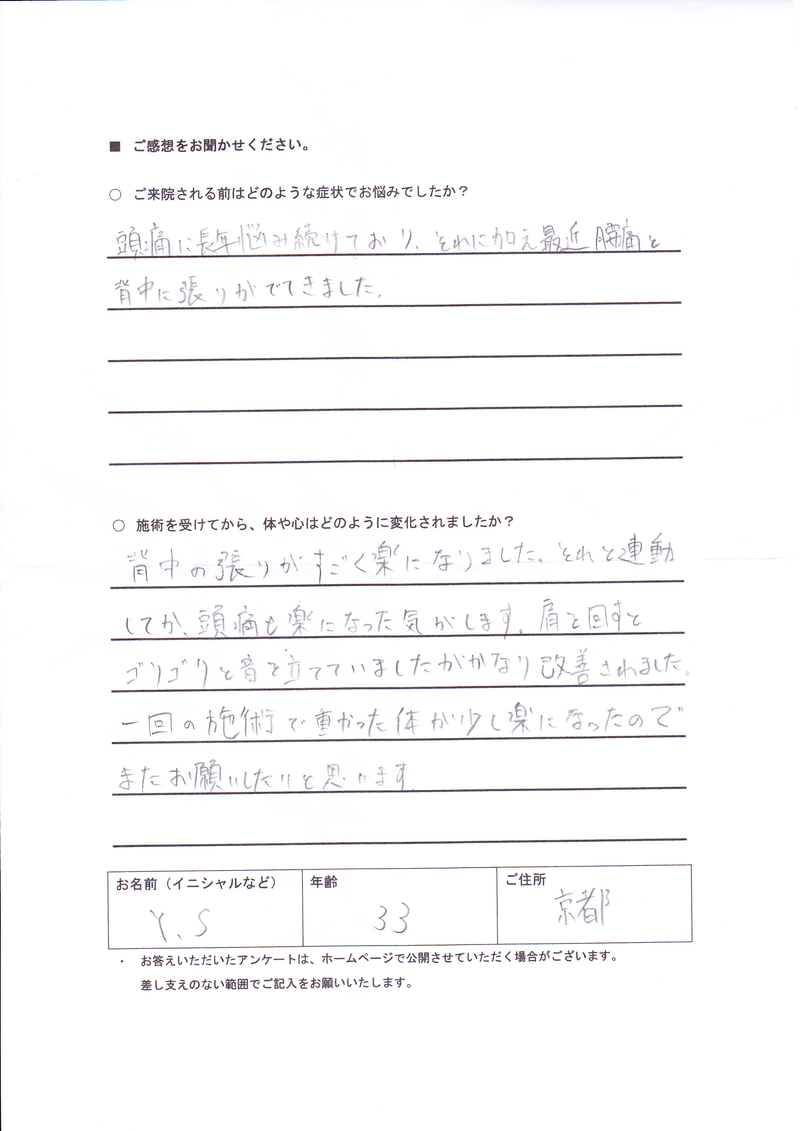 ■ ご感想をお聞かせください。
○ ご来院される前はどのような症状でお悩みでしたか？
頭痛に長年悩み続けており、それに加え最近腰痛と
背中に張りがでてきました。
○ 施術を受けてから、体や心はどのように変化されましたか？
背中の張りがすごく楽になりました。それと連動
してか、頭痛も楽になった気がします。肩を回すと
ゴリゴリと音を立てていましたがかなり改善されました。
一回の施術で重かった体が少し楽になったので
またお願いしたいと思います
お名前（イニシャルなど） 年齢 ご住所
Y.S 33 京都
・ お答えいただいたアンケートは、ホームページで公開させていただく場合がございます。
差し支えのない範囲でご記入をお願いいたします。